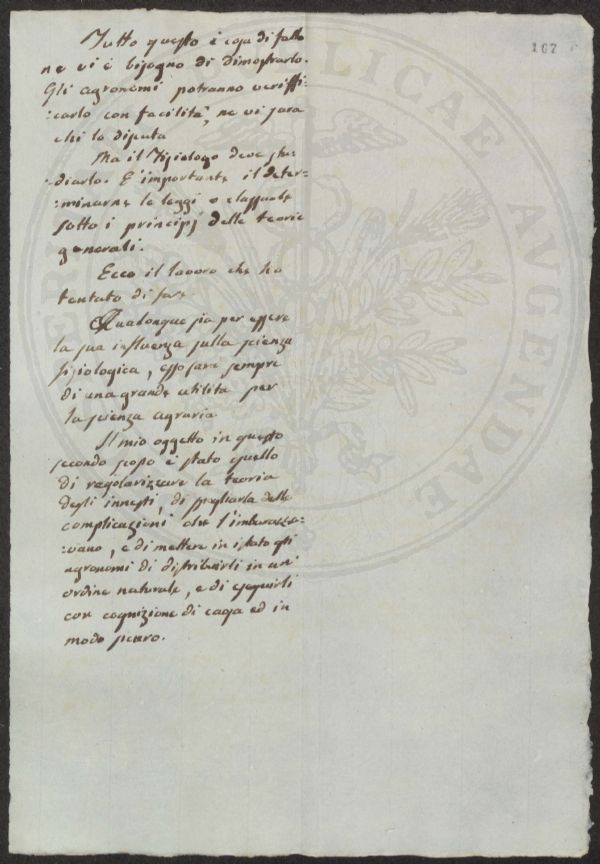 167
Tutto questo è cosa di fatto
ne vi è bisogno di dimostrarlo.
Gli agronomi potranno veriffi-
:carlo con facilità, ne vi sara
chi lo disputa
Ma il Fisiologo deve stu
diarlo. E' importante il deter-
:minarne le leggi o classarle
sotto i principj delle teorie
generali.
Ecco il lavoro che ho
tentato di fare
Qualonque sia per essere
la sua influenza sulla scienza
fisiologica, esso sarà sempre
di una grande utilità per
la scienza agraria
Il mio oggetto in questo
secondo scopo è stato quello
di regolarizzare la teoria
degli innesti, di spogliarla delle
complicazioni che l'imbarazza-
:vano, e di mettere in istato gli
agronomi di distribuirli in un'
ordine naturale, e di eseguirli
con cognizione di causa ed in
modo sicuro.